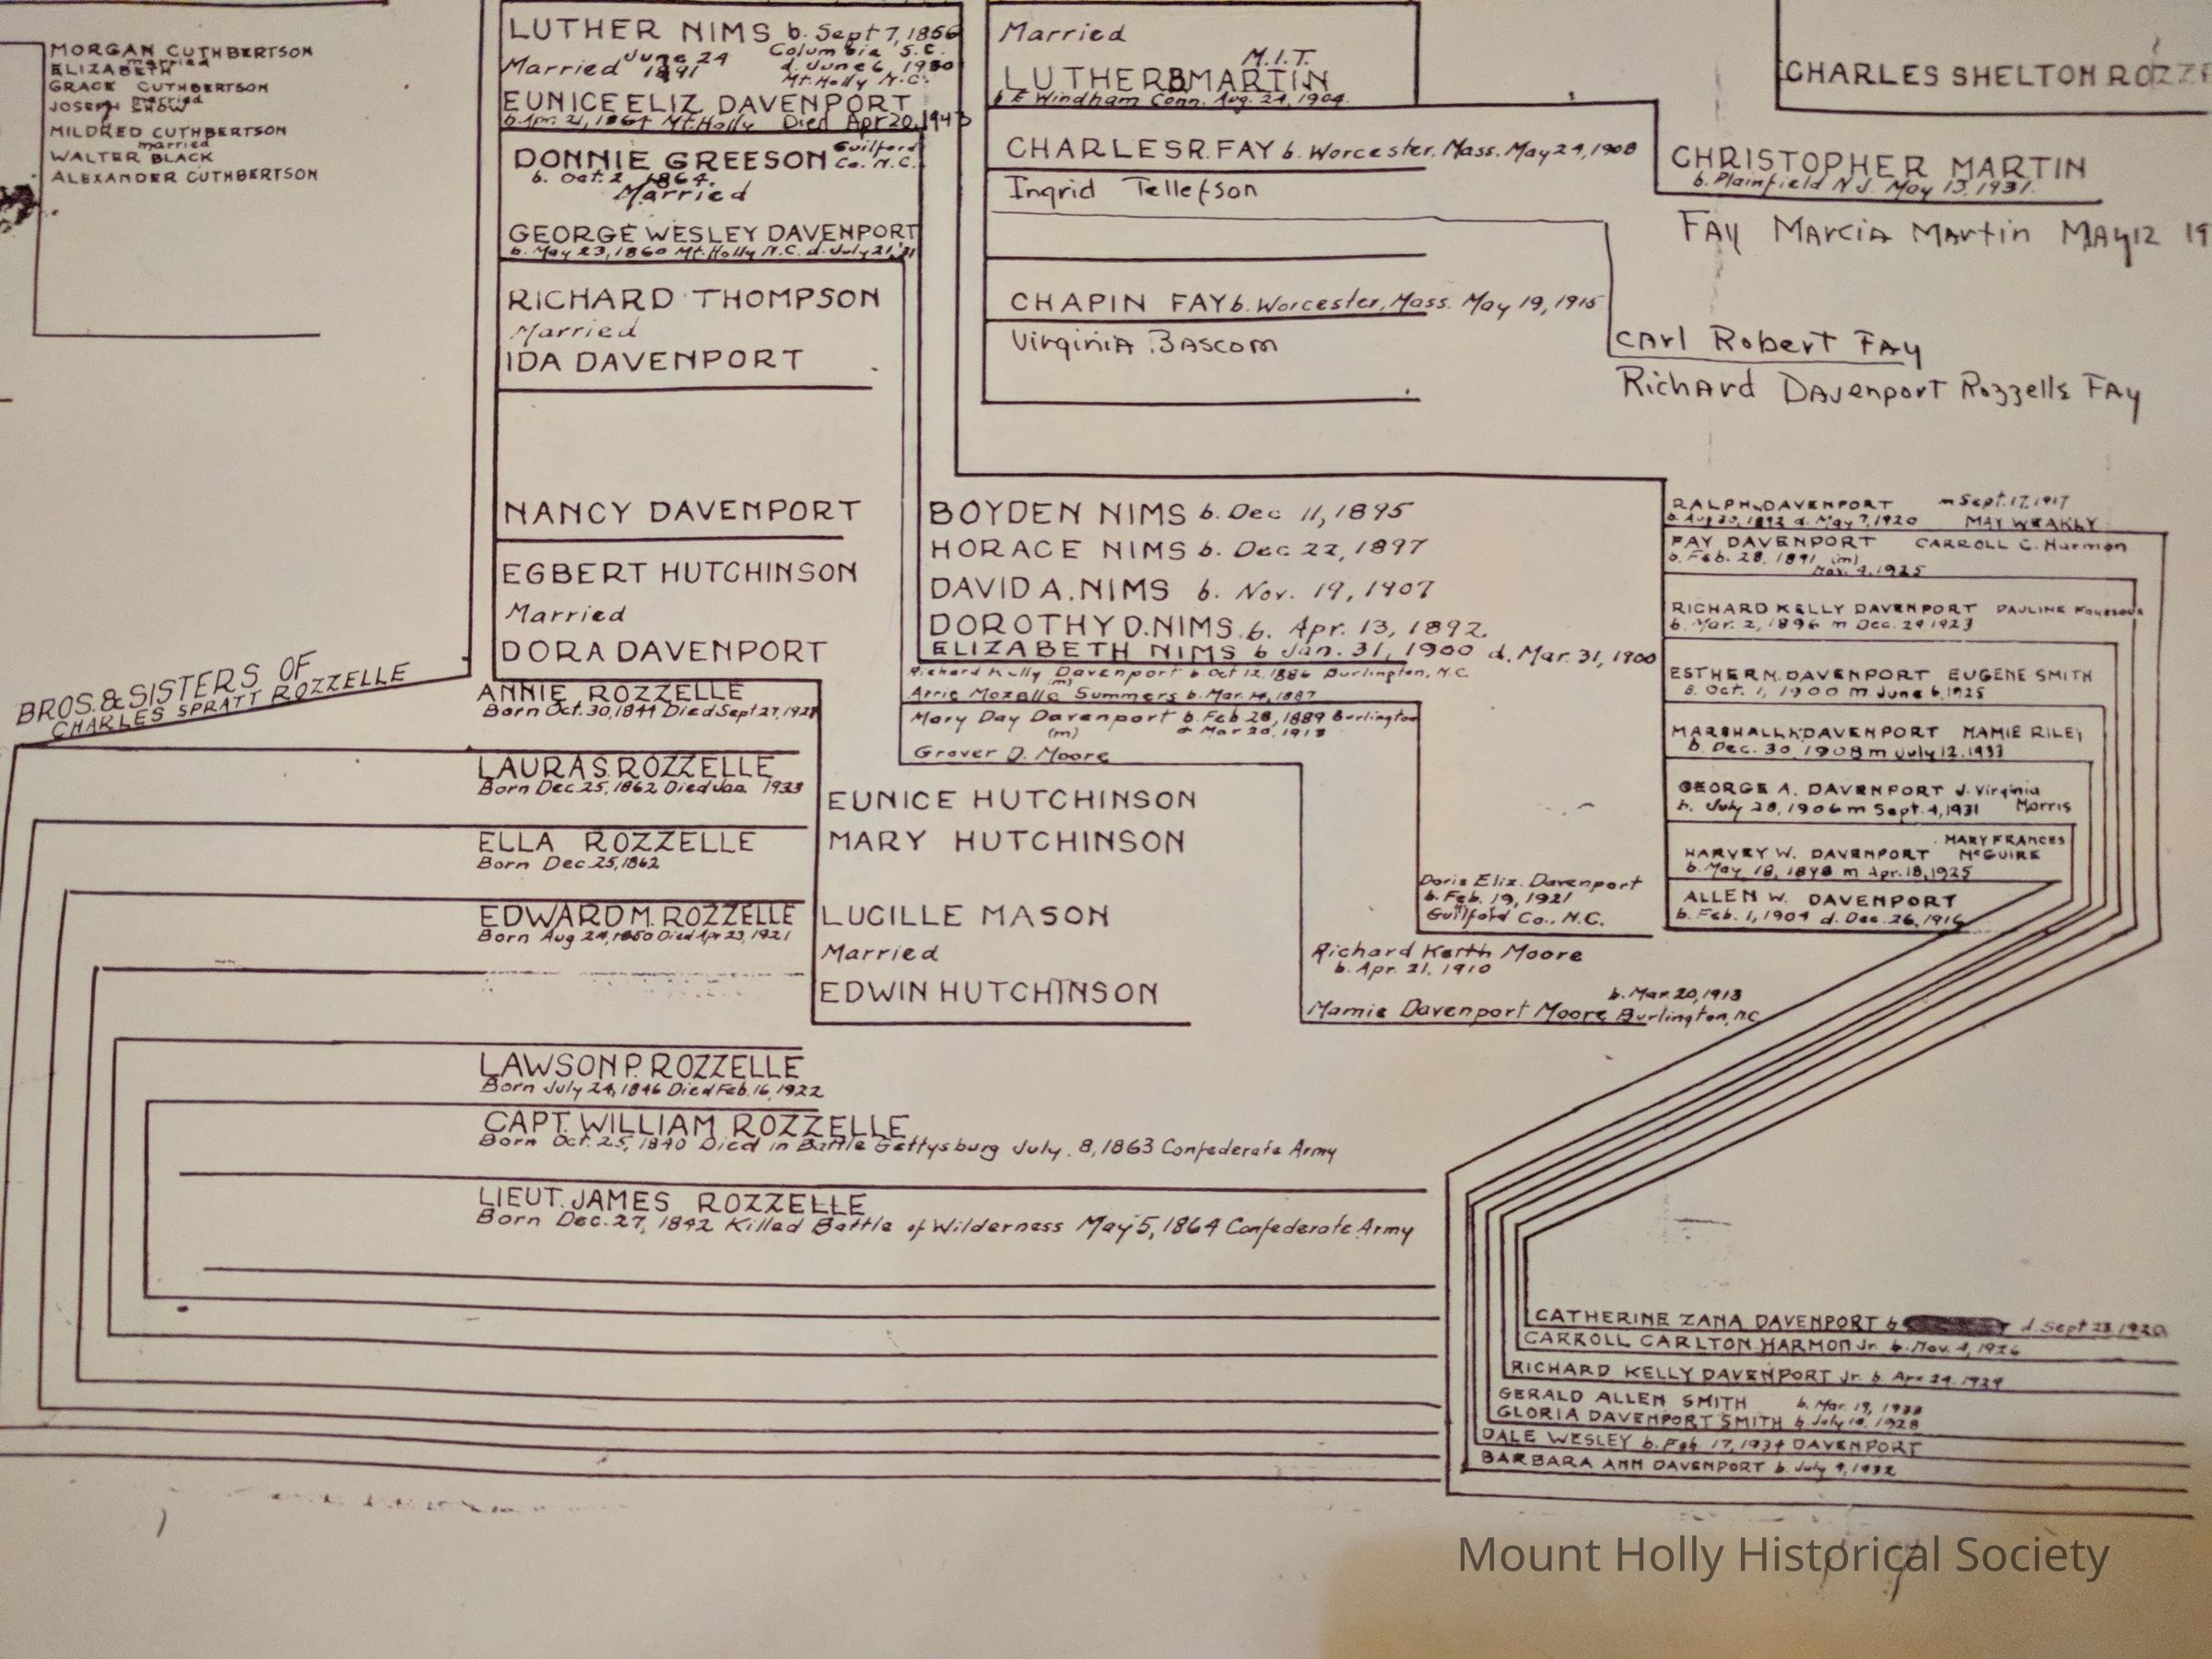 MORGAN CUTHBERTSON
married
ELIZABETH
GRACE CUTHBERTSON
married
JOSEPH
MILDRED CUTHBERTSON
married
WALTER BLACK
ALEXANDER CUTHBERTSON
LUTHER NIMS b. Sept 7, 1856
Columbia S.C.
Married June 24 1891
d. June 6, 1930
Mt. Holly N.C.
EUNICE ELIZ. DAVENPORT
b. Apr. 21, 1864 Mt. Holly Died Apr 20, 1943
DONNIE GREESON Guilford Co. N.C.
b. Oct. 2 1864.
Married
GEORGE WESLEY DAVENPORT
b. May 23, 1860 Mt. Holly N.C. d. July 21,
RICHARD THOMPSON
Married
IDA DAVENPORT
NANCY DAVENPORT
EGBERT HUTCHINSON
Married
DORA DAVENPORT
Married
M.I.T.
LUTHER B MARTIN
b E Windham Conn. Aug. 29, 1904.
CHARLES R. FAY b. Worcester, Mass. May 29, 1908
Ingrid Tellefson
CHAPIN FAY b. Worcester, Mass. May 19, 1915
Virginia Bascom
CHARLES SHELTON ROZZE
CHRISTOPHER MARTIN
b. Plainfield N.J. May 13, 1931.
Fay Marcia Martin May 12 19
Carl Robert Fay
Richard Davenport Rozzells Fay
BOYDEN NIMS b. Dec 11, 1895
HORACE NIMS b. Dec 22, 1897
DAVID A. NIMS b. Nov. 19, 1907
DOROTHY D. NIMS b. Apr. 13, 1892.
ELIZABETH NIMS b Jan. 31, 1900 d. Mar. 31, 1900
Richard Kelly Davenport b Oct 12, 1886 Burlington, N.C.
(m)
Arrie Mozelle Summers b. Mar. 14, 1887
Mary Day Davenport b. Feb 28, 1889 Burlington
(m) d Mar 20, 1913
Grover D. Moore
RALPH W. DAVENPORT m Sept. 17, 1917
b Aug 30, 1892 d. May 7, 1920 MAY WEAKLY
FAY DAVENPORT CARROLL C. Harmon
b. Feb. 28, 1891 (m)
Nov. 4, 1925
RICHARD KELLY DAVENPORT PAULINE
b. Mar. 2, 1896 m Dec. 29 1923
ESTHER N. DAVENPORT EUGENE SMITH
b. Oct. 1, 1900 m June 6, 1925
MARSHALL K. DAVENPORT MAMIE RILEY
b. Dec. 30 1908 m July 12, 1933
GEORGE A. DAVENPORT J. Virginia
b. July 28, 1906 m Sept. 4, 1931 Morris
MARY FRANCES
HARVEY W. DAVENPORT McGUIRE
b. May 18, 1898 m Apr. 18, 1925
ALLEN W. DAVENPORT
b. Feb. 1, 1904 d. Dec. 26, 1916
BROS. & SISTERS OF
CHARLES SPRATT ROZZELLE
ANNIE ROZZELLE
Born Oct. 30, 1844 Died Sept 27, 1928
LAURA S. ROZZELLE
Born Dec. 25, 1862 Died Jan 1933
ELLA ROZZELLE
Born Dec. 25, 1862
EDWARD M. ROZZELLE
Born Aug 24, 1850 Died Apr 23, 1921
LAWSON P. ROZZELLE
Born July 24, 1846 Died Feb. 16, 1922
CAPT. WILLIAM ROZZELLE
Born Oct. 25, 1840 Died in Battle Gettysburg July. 8, 1863 Confederate Army
LIEUT. JAMES ROZZELLE
Born Dec. 27, 1842 Killed Battle of Wilderness May 5, 1864 Confederate Army
EUNICE HUTCHINSON
MARY HUTCHINSON
LUCILLE MASON
Married
EDWIN HUTCHINSON
Doris Eliz. Davenport
b. Feb. 19, 1921
Guilford Co., N.C.
Richard Keith Moore
b. Apr. 21, 1910
b. Mar. 20, 1913
Mamie Davenport Moore Burlington, NC
CATHERINE ZANA DAVENPORT b d. Sept 23, 1920
CARROLL CARLTON HARMON Jr. b. Nov. 4, 1926
RICHARD KELLY DAVENPORT Jr. b. Apr 29. 1929
GERALD ALLEN SMITH b. Mar. 19, 1933
GLORIA DAVENPORT SMITH b July 10, 1928
DALE WESLEY b. Feb 17, 1934 DAVENPORT
BARBARA ANN DAVENPORT b. July 9, 1932
Mount Holly Historical Society